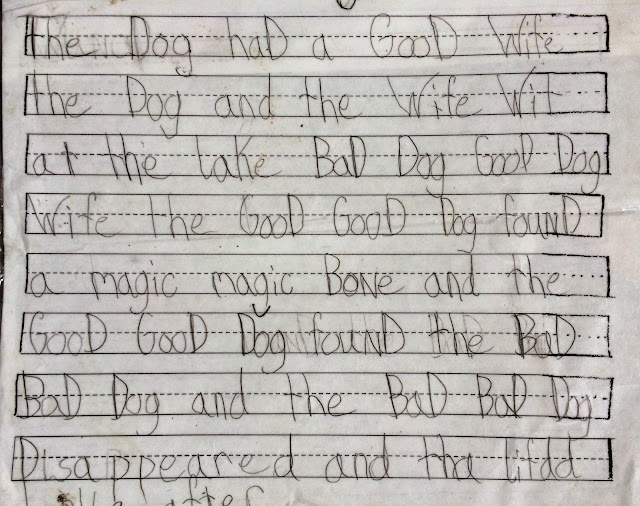 the Dog haD a GooD Wife
the Dog and the Wife Wit
at the lake BaD Dog GooD Dog
Wife the GooD GooD Dog founD
a magic magic BoNe and the
GooD GooD Dog founD the BaD
BaD Dog and the BaD BaD Dog
Disappeared and tha lifdd
after